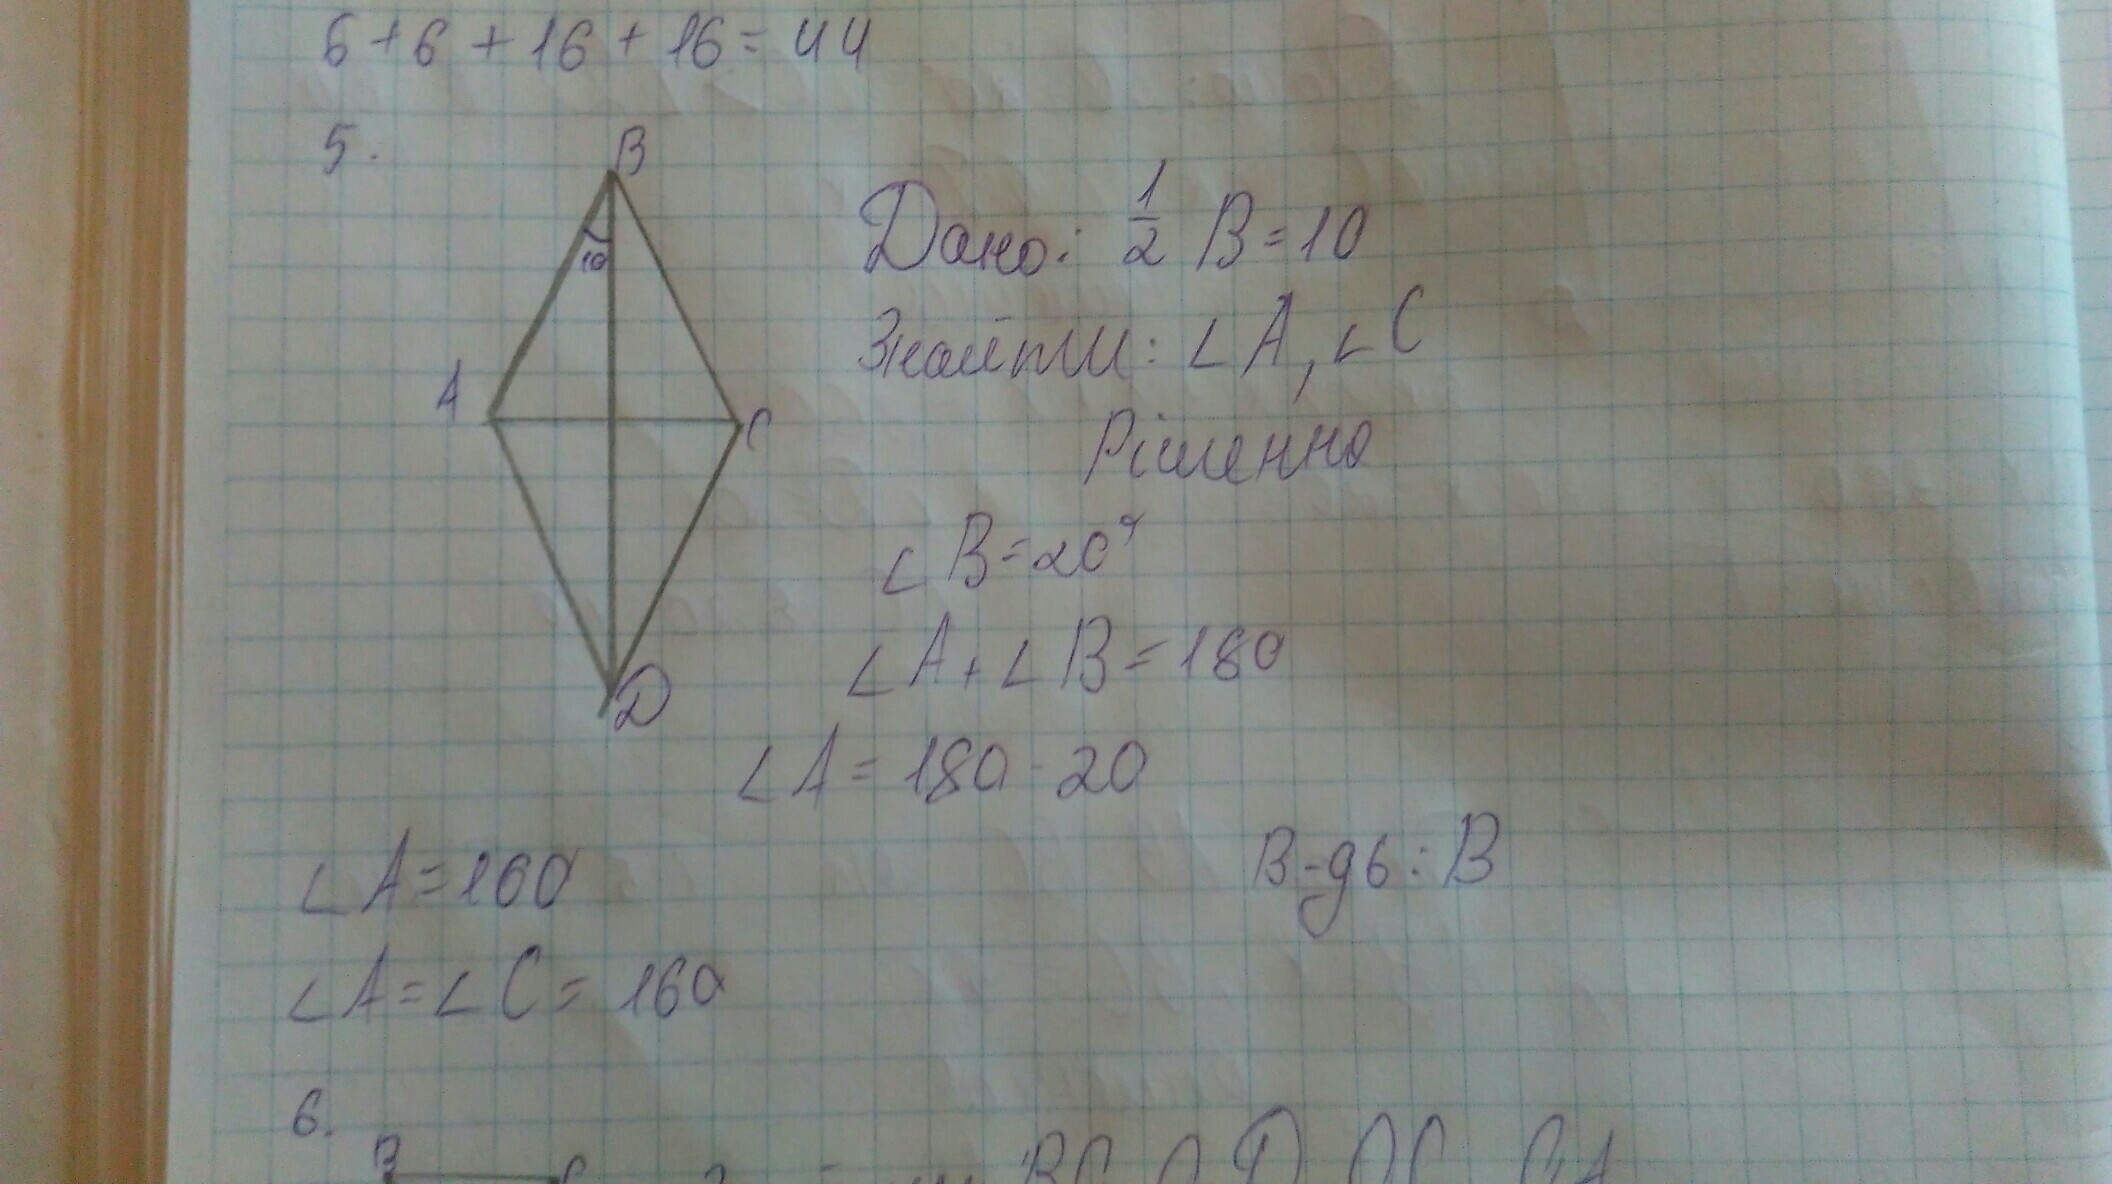 6 + 6 + 16 + 16 = 44
5.
B
10
A
C
D
Дано: 1/2 B = 10
Знайти: ∠A, ∠C
Рішення
∠B = 20°
∠A + ∠B = 180
∠A = 180 - 20
∠A = 160
В-дь: В
∠A = ∠C = 160
6.
B C